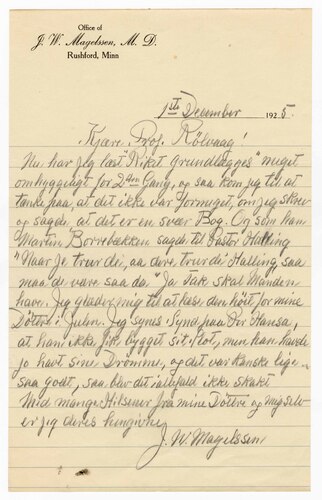 Office of
J. W. Magelssen, M. D.
Rushford, Minn
1ste December 1925
Kjære Prof. Rölvaag!
Nu har jeg læst "Riket Grundlægges" meget
omhyggeligt for 2den Gang, og saa kom jeg til at
tænke paa, at det ikke var formeget, om jeg skrev
og sagde at det er en svær Bog. Og som han
Martin Borrebækken sagde til Pastor Halling
"Naar Je trur di, aa dere trur di Halling, saa
maa de være saa da." Ja Tak skal Manden
have. Jeg glæder mig til at læse den höit for mine
Döttre i Julen. Jeg synes Synd paa Per Hansa,
at han ikke fik bygget sit Slot, men han havde
jo havt sine Drömme, og det var kanske lige-
saa godt, saa blev det iallefald ikke skakt
Med mange Hilsener fra mine Döttre og mig selv
er jeg deres hengivne
J. W. Magelssen